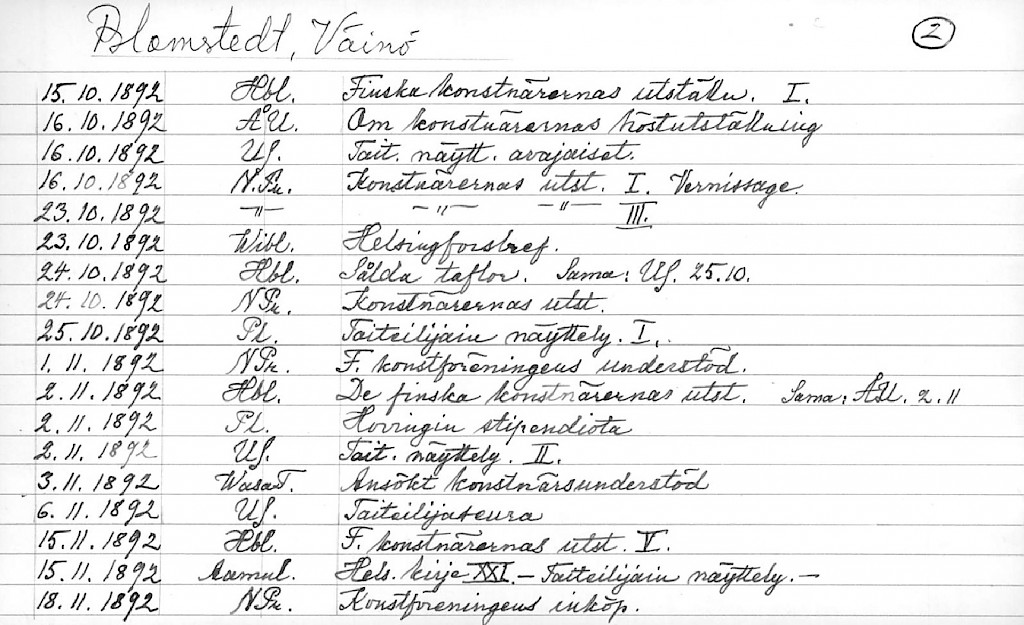 Blomstedt, Väinö 2
15.10.1892 Hbl. Finska konstnärernas utställn. I.
16.10.1892 ÅU. Om konstnärernas höstutställning
16.10.1892 US. Tait. näytt. avajaiset.
16.10.1892 N.Pr. Konstnärernas utst. I. Vernissage.
23.10.1892 —"— —"— —"— III.
23.10.1892 Wibl. Helsingforsbref.
24.10.1892 Hbl. Sålda taflor. Sama: US. 25.10.
24.10.1892 NPr. Konstnärernas utst.
25.10.1892 Pl. Taiteilijain näyttely. I.
1.11.1892 NPr. F. konstföreningens understöd.
2.11.1892 Hbl. De finska konstnärernas utst. Sama: ÅU. 2.11
2.11.1892 Pl. Hovingin stipendiota
2.11.1892 US. Tait. näyttely. II.
3.11.1892 WasaT. Ansökt konstnärsunderstöd
6.11.1892 US. Taiteilijaseura
15.11.1892 Hbl. F. konstnärernas utst. V.
15.11.1892 Aamul. Hels. kirje XXI. — Taiteilijain näyttely. —
18.11.1892 NPr. Konstföreningens inköp.